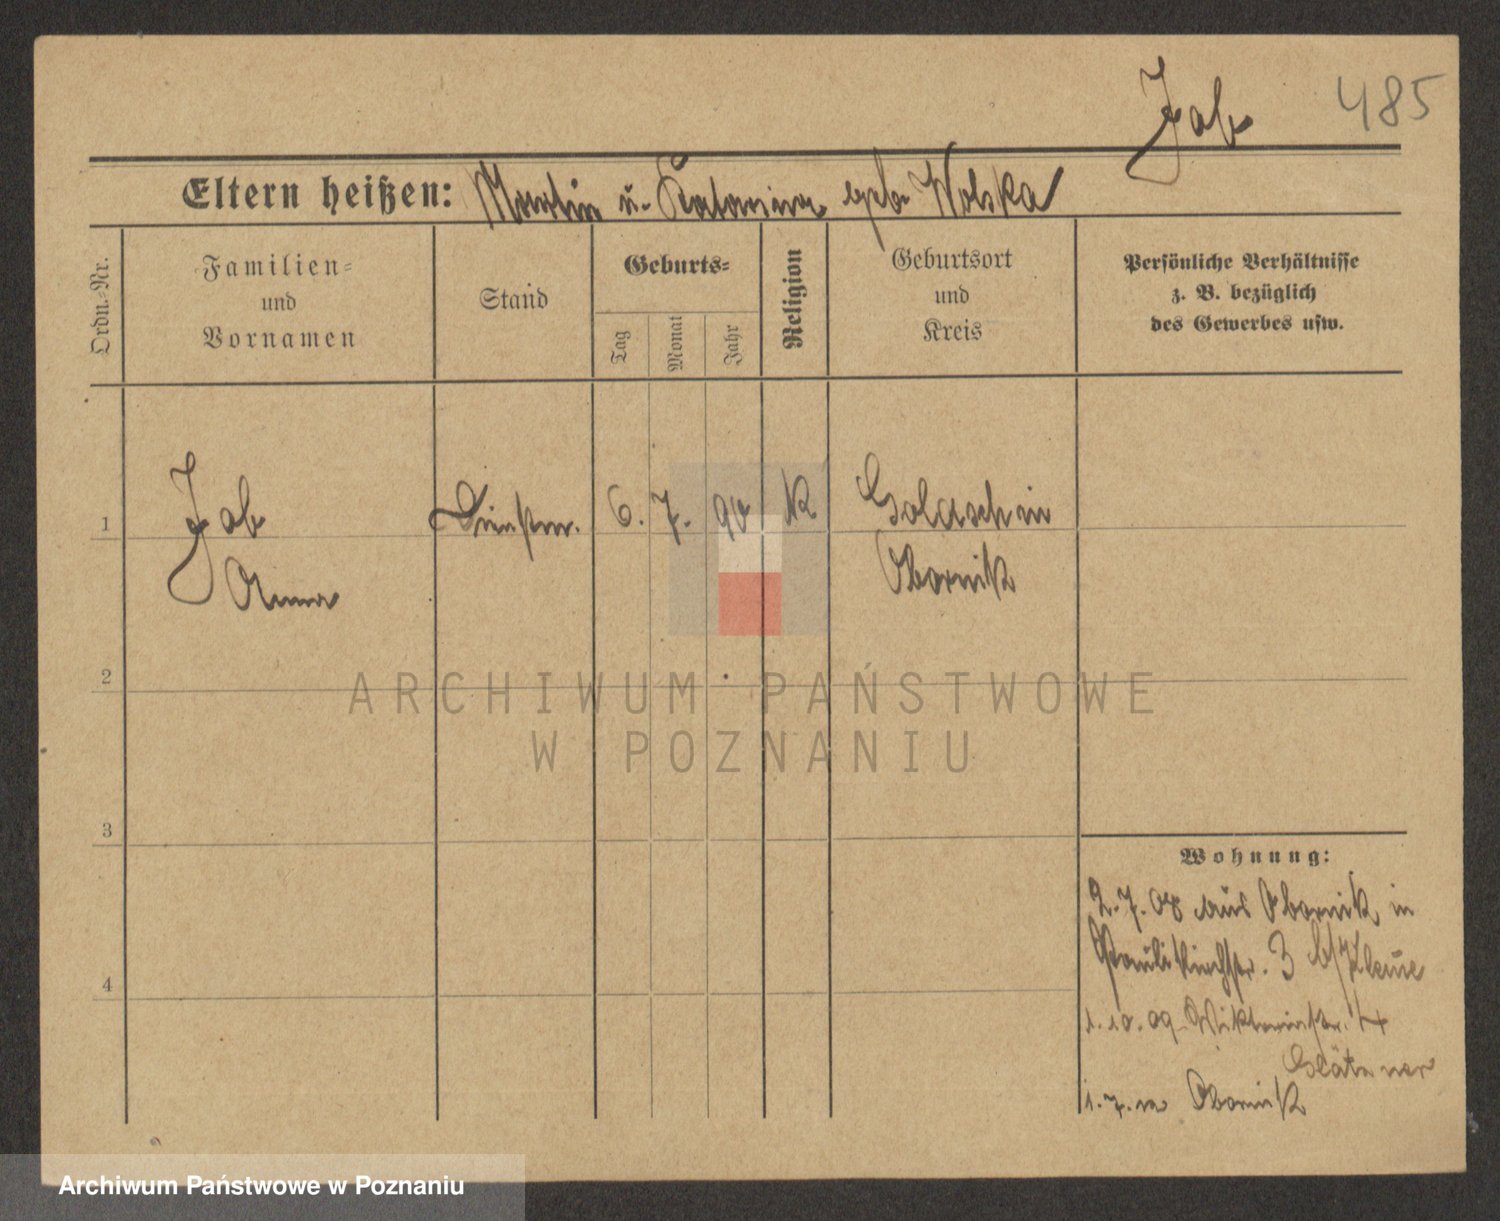 Jab 485
Eltern heißen: Martin u. Katarina geb Wolska
Ordn.-Nr.
Familien-
und
Vornamen
Stand
Geburts-
Tag
Monat
Jahr
Religion
Geburtsort
und
Kreis
Persönliche Verhältnisse
z. B. bezüglich
des Gewerbes usw.
1 Jab Dienstm. 6. 7. 90 K Golaschin
Anna Obornik
2
ARCHIWUM PAŃSTWOWE
W POZNANIU
3
Wohnung:
2.7.08 aus Obornik in
Paulikirchstr. 3 b/
4
1.10.09 Viktoriastr.
1.7. Obornik
Archiwum Państwowe w Poznaniu